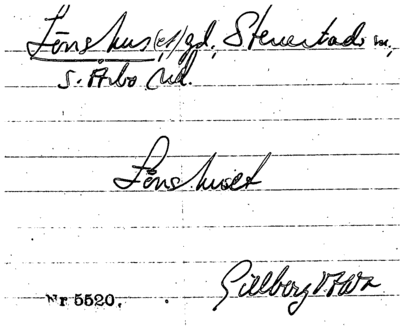 Lönshus(et) gd, Stenestads sn,
S. Åsbo hd.
Lönshuset
Gillberg
Nr 5520.